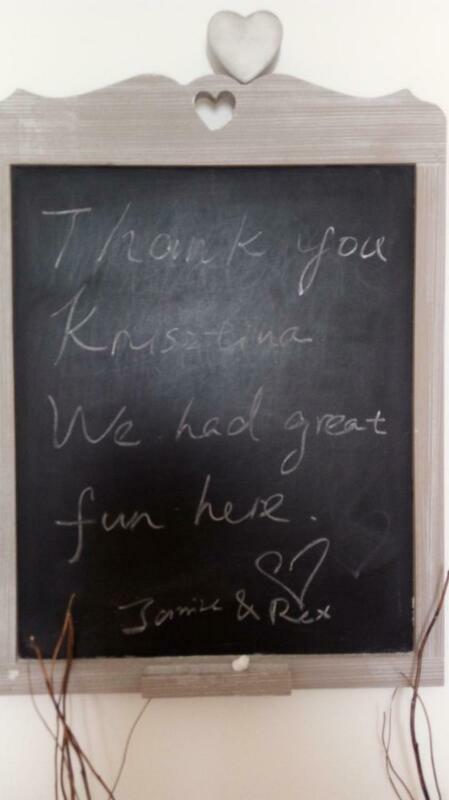 Thank you
Krisztina
We had great
fun here.
& Rex